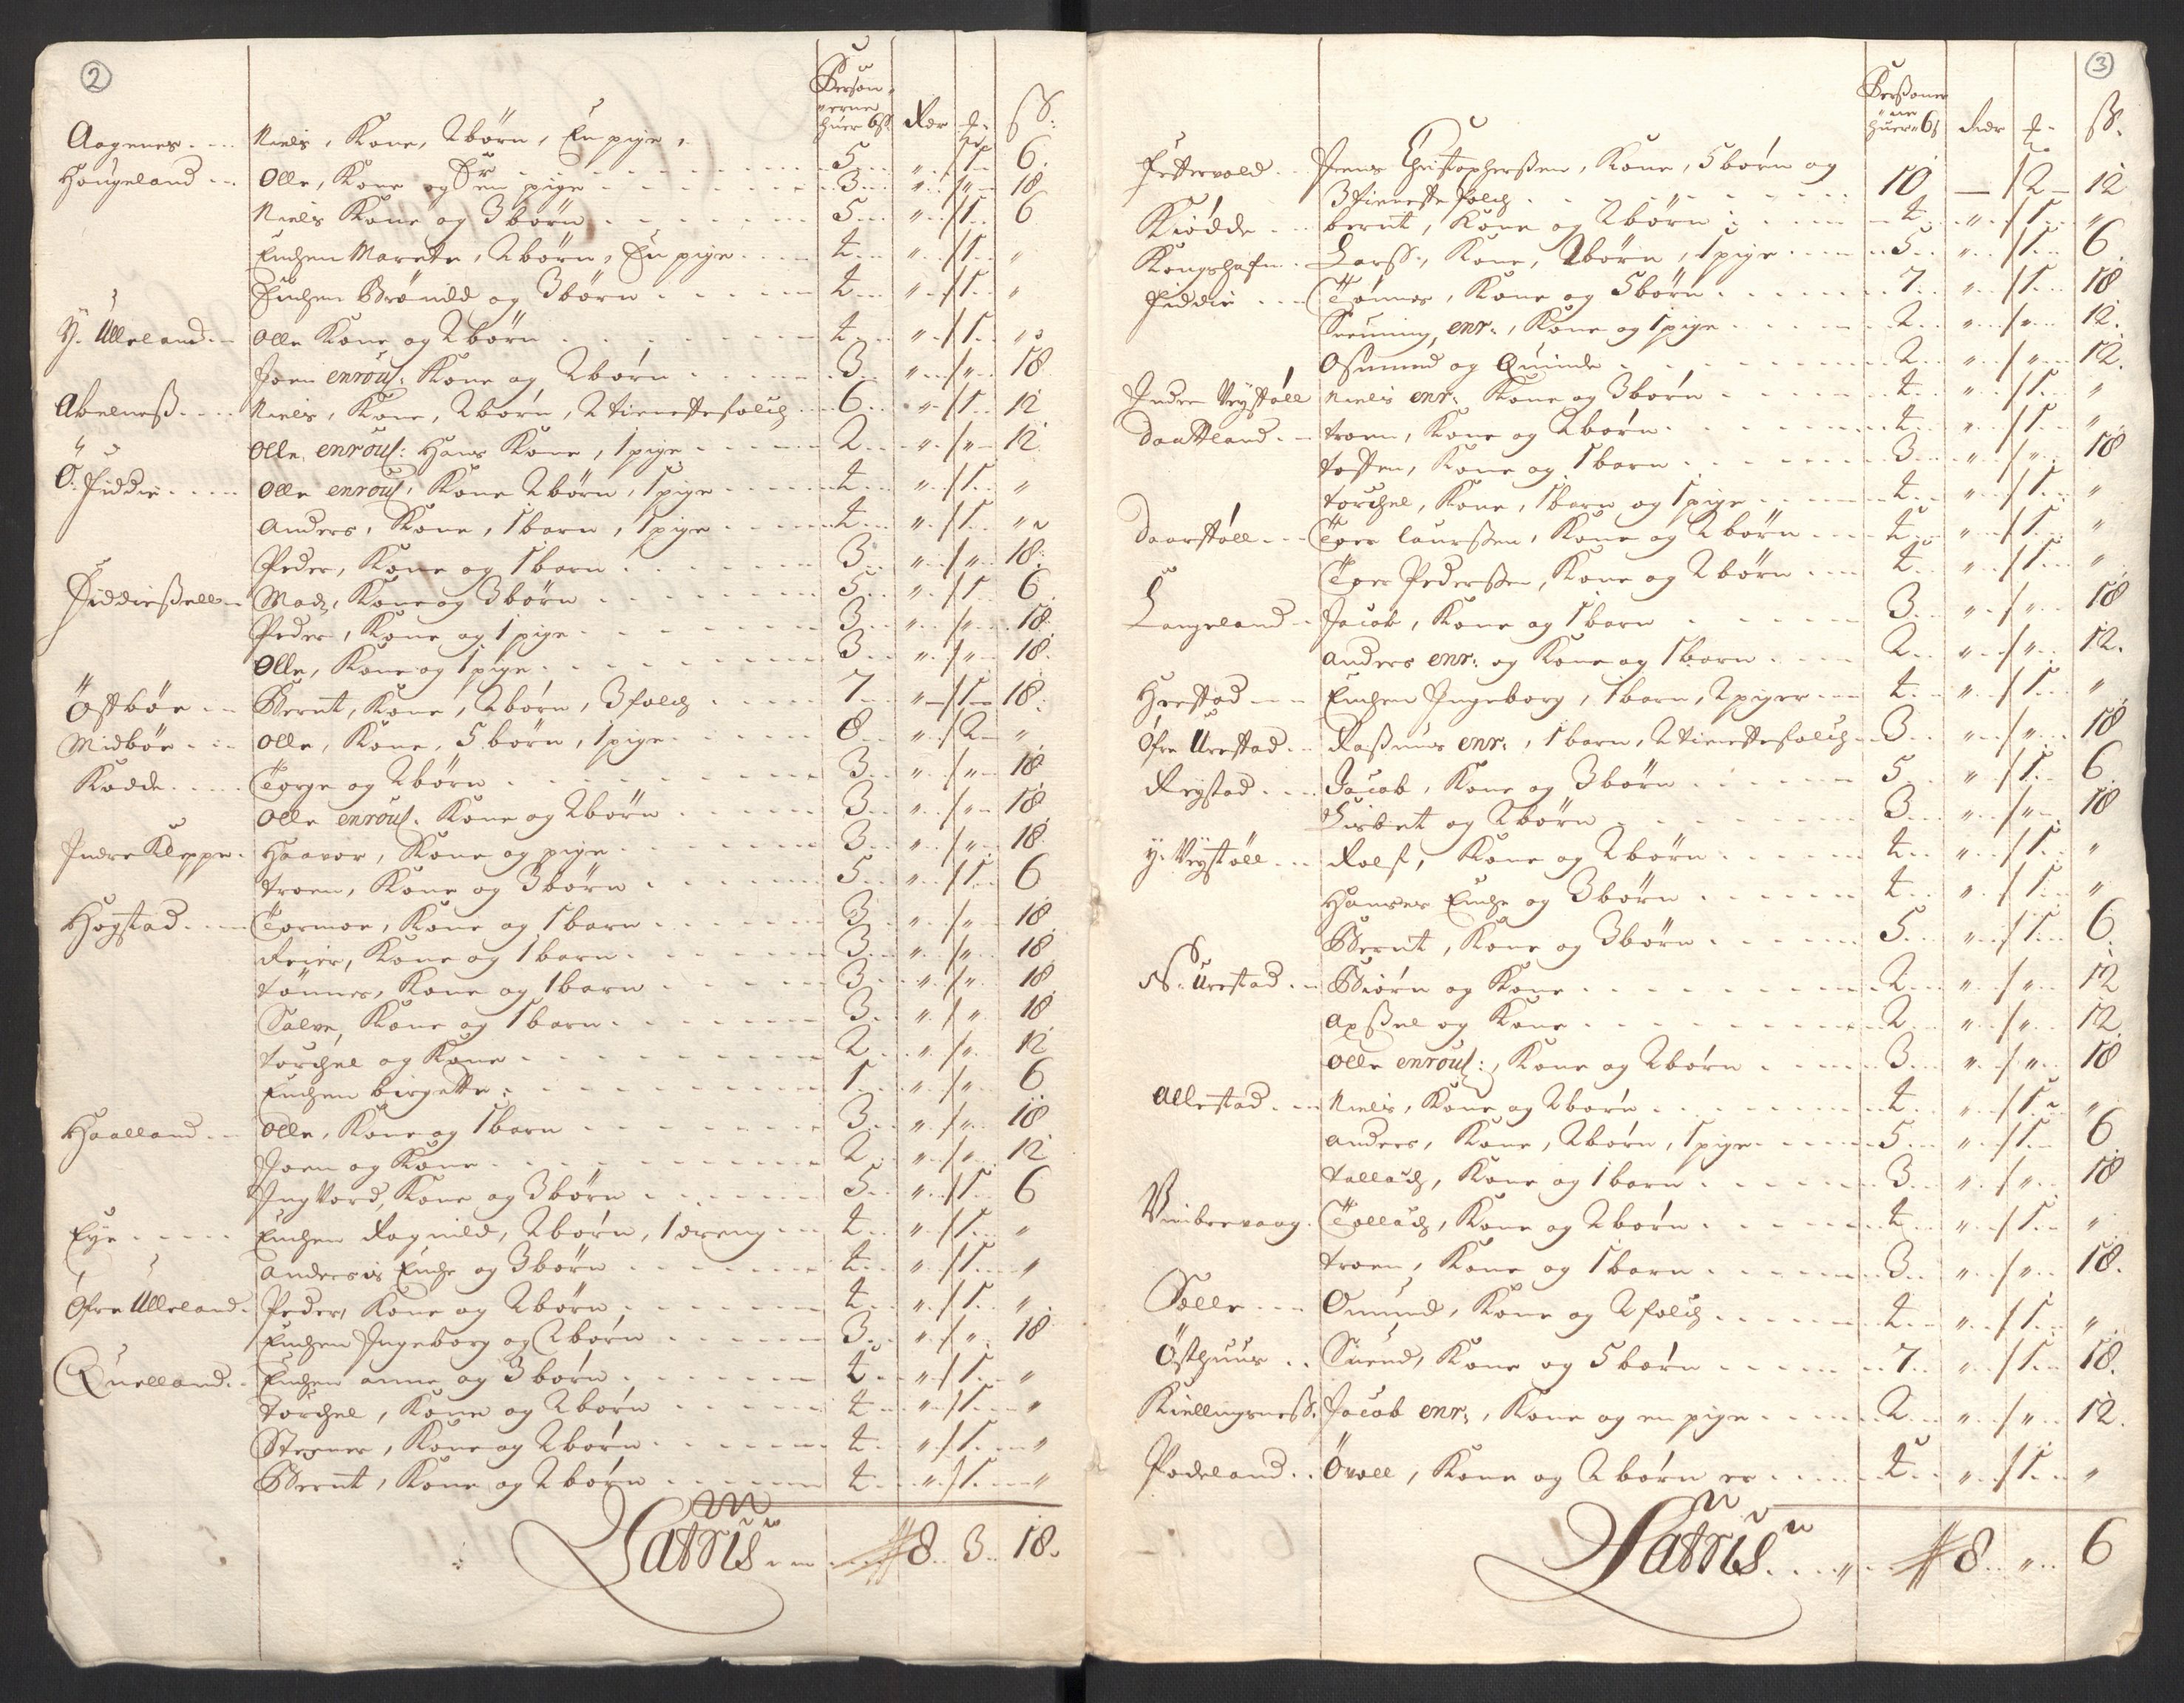 2
Person-
erne
huer 6 ß Rdr ß:
Aagenes Niels, Kone, 2 børn, En pige, 5 " 1 6
Haugeland Olle, Kone og En pige 3 " " 18
Niels Kone og 3 børn 5 " 1 6
Enchen Marete, 2 børn, En pige 4 " 1 "
Enchen Brönild og 3 børn 4 " 1 "
Y. Ulleland Olle Kone og 2 børn 4 " 1 "
Joen enroul: Kone og 2 børn 3 " " 18
Abelneß Niels, Kone, 2 børn, 2 tienestefolch 6 " 1 12
Olle enroul: Hans Kone, 1 pige 2 " " 12
Ö. Fiddie Olle enroul: Kone 2 børn, 1 pige 4 " 1 "
Anders, Kone, 1 barn, 1 pige 4 " 1 "
Peder, Kone og 1 barn 3 " " 18
Fiddiesell Madz, Kone og 3 børn 5 " 1 6
Peder, Kone og 1 pige 3 " " 18
Olle, Kone og 1 pige 3 " " 18
Östbøe Bernt, Kone, 2 børn, 3 folch 7 " 1 18
Midbøe Olle, Kone, 5 børn, 1 pige 8 " 2 "
Kodde Torge og 2 børn 3 " " 18
Olle enroul. Kone og 2 børn 3 " " 18
Indre Kleppe Haavor, Kone og pige 3 " " 18
Troen, Kone og 3 børn 5 " 1 6
Högstad Tormoe, Kone og 1 barn 3 " " 18
Reier, Kone og 1 barn 3 " " 18
Tönnes, Kone og 1 barn 3 " " 18
Salve, Kone og 1 barn 3 " " 18
Torchel og Kone 2 " " 12
Enchen birgette 1 " " 6
Haalland Olle, Kone og 1 barn 3 " " 18
Joen og Kone 2 " " 12
Ingvord, Kone og 3 børn 5 " 1 6
Eye Enchen Ragnild, 2 børn, 1 dreng 4 " 1 "
Andersis Enche og 3 børn 4 " 1 "
Öfre Ulleland Peder, Kone og 2 børn 4 " 1 "
Enchen Ingeborg og 2 børn 3 " " 18
Quelland Enchen anne og 3 børn 4 " 1 "
Torchel, Kone og 2 børn 4 " 1 "
Stener, Kone og 2 børn 4 " 1 "
Bernt, Kone og 2 børn 4 " 1 "
Latris 8 3 18
3
Personer
ne
huer 6 ß Rdr ß.
Festervold Jens Christophersen, Kone, 5 børn og
3 tieneste folch 10 — 2 12
Kiödde bernt, Kone og 2 børn 4 " 1 "
Kongshafn Larß, Kone, 2 børn, 1 pige 5 " 1 6
Fiddie Tönnes, Kone og 5 børn 7 " 1 18
Suening, enr., Kone og 1 pige 2 " " 12
Osmund og Quinde 2 " " 12
Indre Veystöll Niels enr. Kone og 3 børn 4 " 1 "
Daattland Troen, Kone og 2 børn 4 " 1 "
Tosten, Kone og 1 barn 3 " " 18
Torchel, Kone, 1 barn og 1 pige 4 " 1 "
Daarstöll Toer laursen, Kone og 2 børn 4 " 1 "
Toer Pedersen, Kone og 2 børn 4 " 1 "
Langeland Jacob, Kone og 1 barn 3 " " 18
Anders enr. og Kone og 1 barn 2 " " 12
Hrestad Enchen Ingeborg, 1 barn, 2 piger 4 " 1 "
Öfre Urestad Raßmus enr., 1 barn, 2 tienestefolch 3 " " 18
Regstad Jacob, Kone og 3 børn 5 " 1 6
Lisbet og 2 børn 3 " " 18
Y. Veystöll Rolf, Kone og 2 børn 4 " 1 "
Hanses Enche og 3 børn 4 " 1 "
Bernt, Kone og 3 børn 5 " 1 6
N. Urestad Biørn og Kone 2 " " 12
Axsel og Kone 2 " " 12
Olle enroul:, Kone og 2 børn 3 " " 18
Allestad Niels, Kone og 2 børn 4 " 1 "
Anders, Kone, 2 børn, 1 pige 5 " 1 6
Tollach, Kone og 1 barn 3 " " 18
Vinbervaag Tollach, Kone og 2 børn 4 " 1 "
Troen, Kone og 1 barn 3 " " 18
Salle Omund, Kone og 2 folch 4 " 1 "
Östhuus Suend, Kone og 5 børn 7 " 1 18
Kiellingneß Jacob enr:, Kone og en pige 2 " " 12
Fodeland Ovall, Kone og 2 børn er 4 " 1 "
Latris 8 " 6